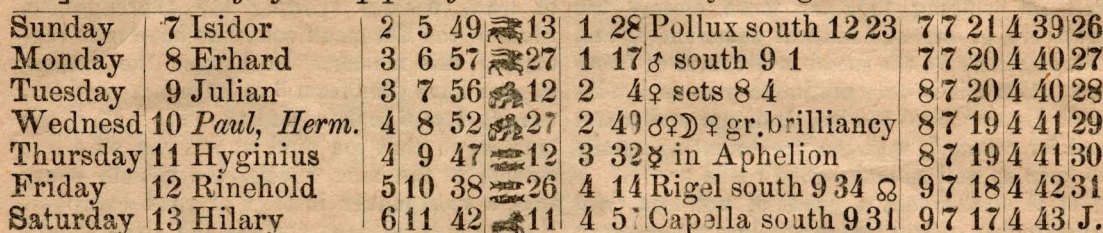 Sunday 7 Isidor 2 5 49 13 1 28 Pollux south 12 23 7 7 21 4 39 26
Monday 8 Erhard 3 6 57 27 1 17 ♂ south 9 1 7 7 20 4 40 27
Tuesday 9 Julian 3 7 56 12 2 4 ♀ sets 8 4 8 7 20 4 40 28
Wednesd 10 Paul, Herm. 4 8 52 27 2 49 ☌♀☽ ♀ gr. brilliancy 8 7 19 4 41 29
Thursday 11 Hyginius 4 9 47 12 3 32 ☿ in Aphelion 8 7 19 4 41 30
Friday 12 Rinehold 5 10 38 26 4 14 Rigel south 9 34 ☊ 9 7 18 4 42 31
Saturday 13 Hilary 6 11 42 11 4 Capella south 9 31 9 7 17 4 43 J.